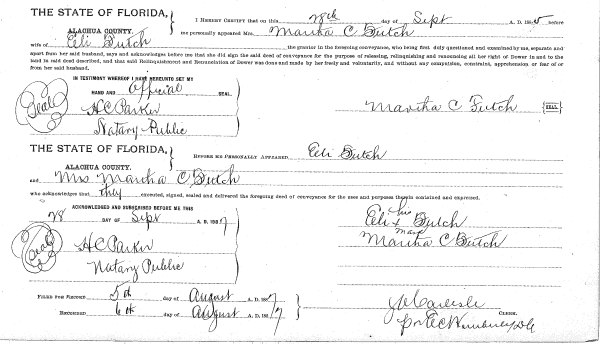 THE STATE OF FLORIDA,
ALACHUA COUNTY.
I HEREBY CERTIFY that on this 28th day of Sept A. D. 188 before
me personally appeared Mrs. Martha C Futch
wife of Eli Futch the grantor in the foregoing conveyance, who being first duly questioned and examined by me, separate and
apart from her said husband, says and acknowledges before me that she did sign the said deed of conveyance for the purpose of releasing, relinquishing and renouncing all her right of Dower in and to the
land in said deed described, and that said Relinquishment and Renunciation of Dower was done and made by her freely and voluntarily, and without any compulsion, constraint, apprehension, or fear of or
from her said husband.
IN TESTIMONY WHEREOF I HAVE HEREUNTO SET MY
HAND AND Official SEAL.
Seal
H C Parker
Notary Public
Martha C Futch SEAL
THE STATE OF FLORIDA,
ALACHUA COUNTY.
BEFORE ME PERSONALLY APPEARED Eli Futch
and Mrs Martha C Futch
who acknowledges that they executed, signed, sealed and delivered the foregoing deed of conveyance for the uses and purposes therein contained and expressed.
ACKNOWLEDGED AND SUBSCRIBED BEFORE ME THIS
28 DAY OF Sept A. D. 188
Seal
H C Parker
Notary Public
his
Eli x Futch
mark
Martha C Futch
FILED FOR RECORD 5th day of August A. D. 1887
RECORDED 6th day of August A. D. 1887
CLERK.